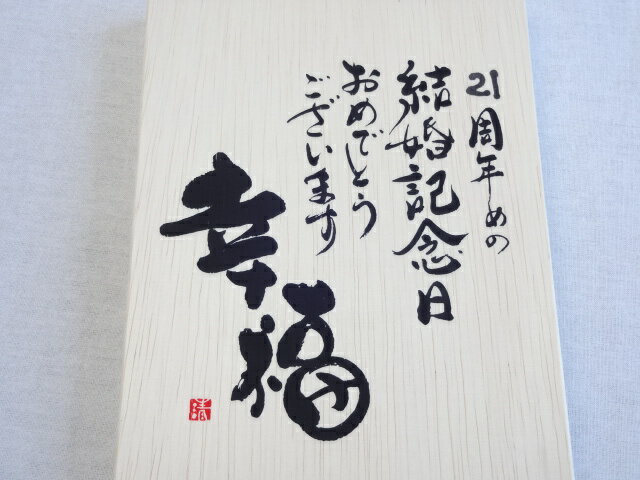 21周年めの
結婚記念日
おめでとう
ございます
幸福
清